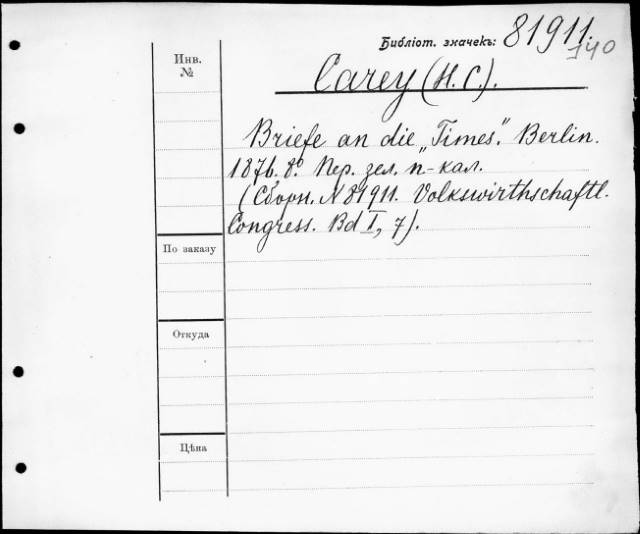 Библіот. значекъ: 81911.
740
Инв.
№
Carey (H. C.).
Briefe an die „Times". Berlin.
1876. 8º. Пер. зел. п-кал.
(Сборн. № 81911. Volkswirthschaftl.
Congress. Bd I, 7).
По заказу
Откуда
Цѣна